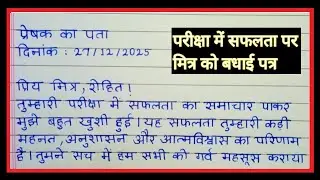 प्रेषक का पता
दिनांक : 27/12/2025
परीक्षा में सफलता पर
मित्र को बधाई पत्र
प्रिय मित्र, रोहित!
तुम्हारी परीक्षा में सफलता का समाचार पाकर
मुझे बहुत खुशी हुई। यह सफलता तुम्हारी कड़ी
मेहनत, अनुशासन और आत्मविश्वास का परिणाम
है। तुमने सच में हम सभी को गर्व महसूस कराया